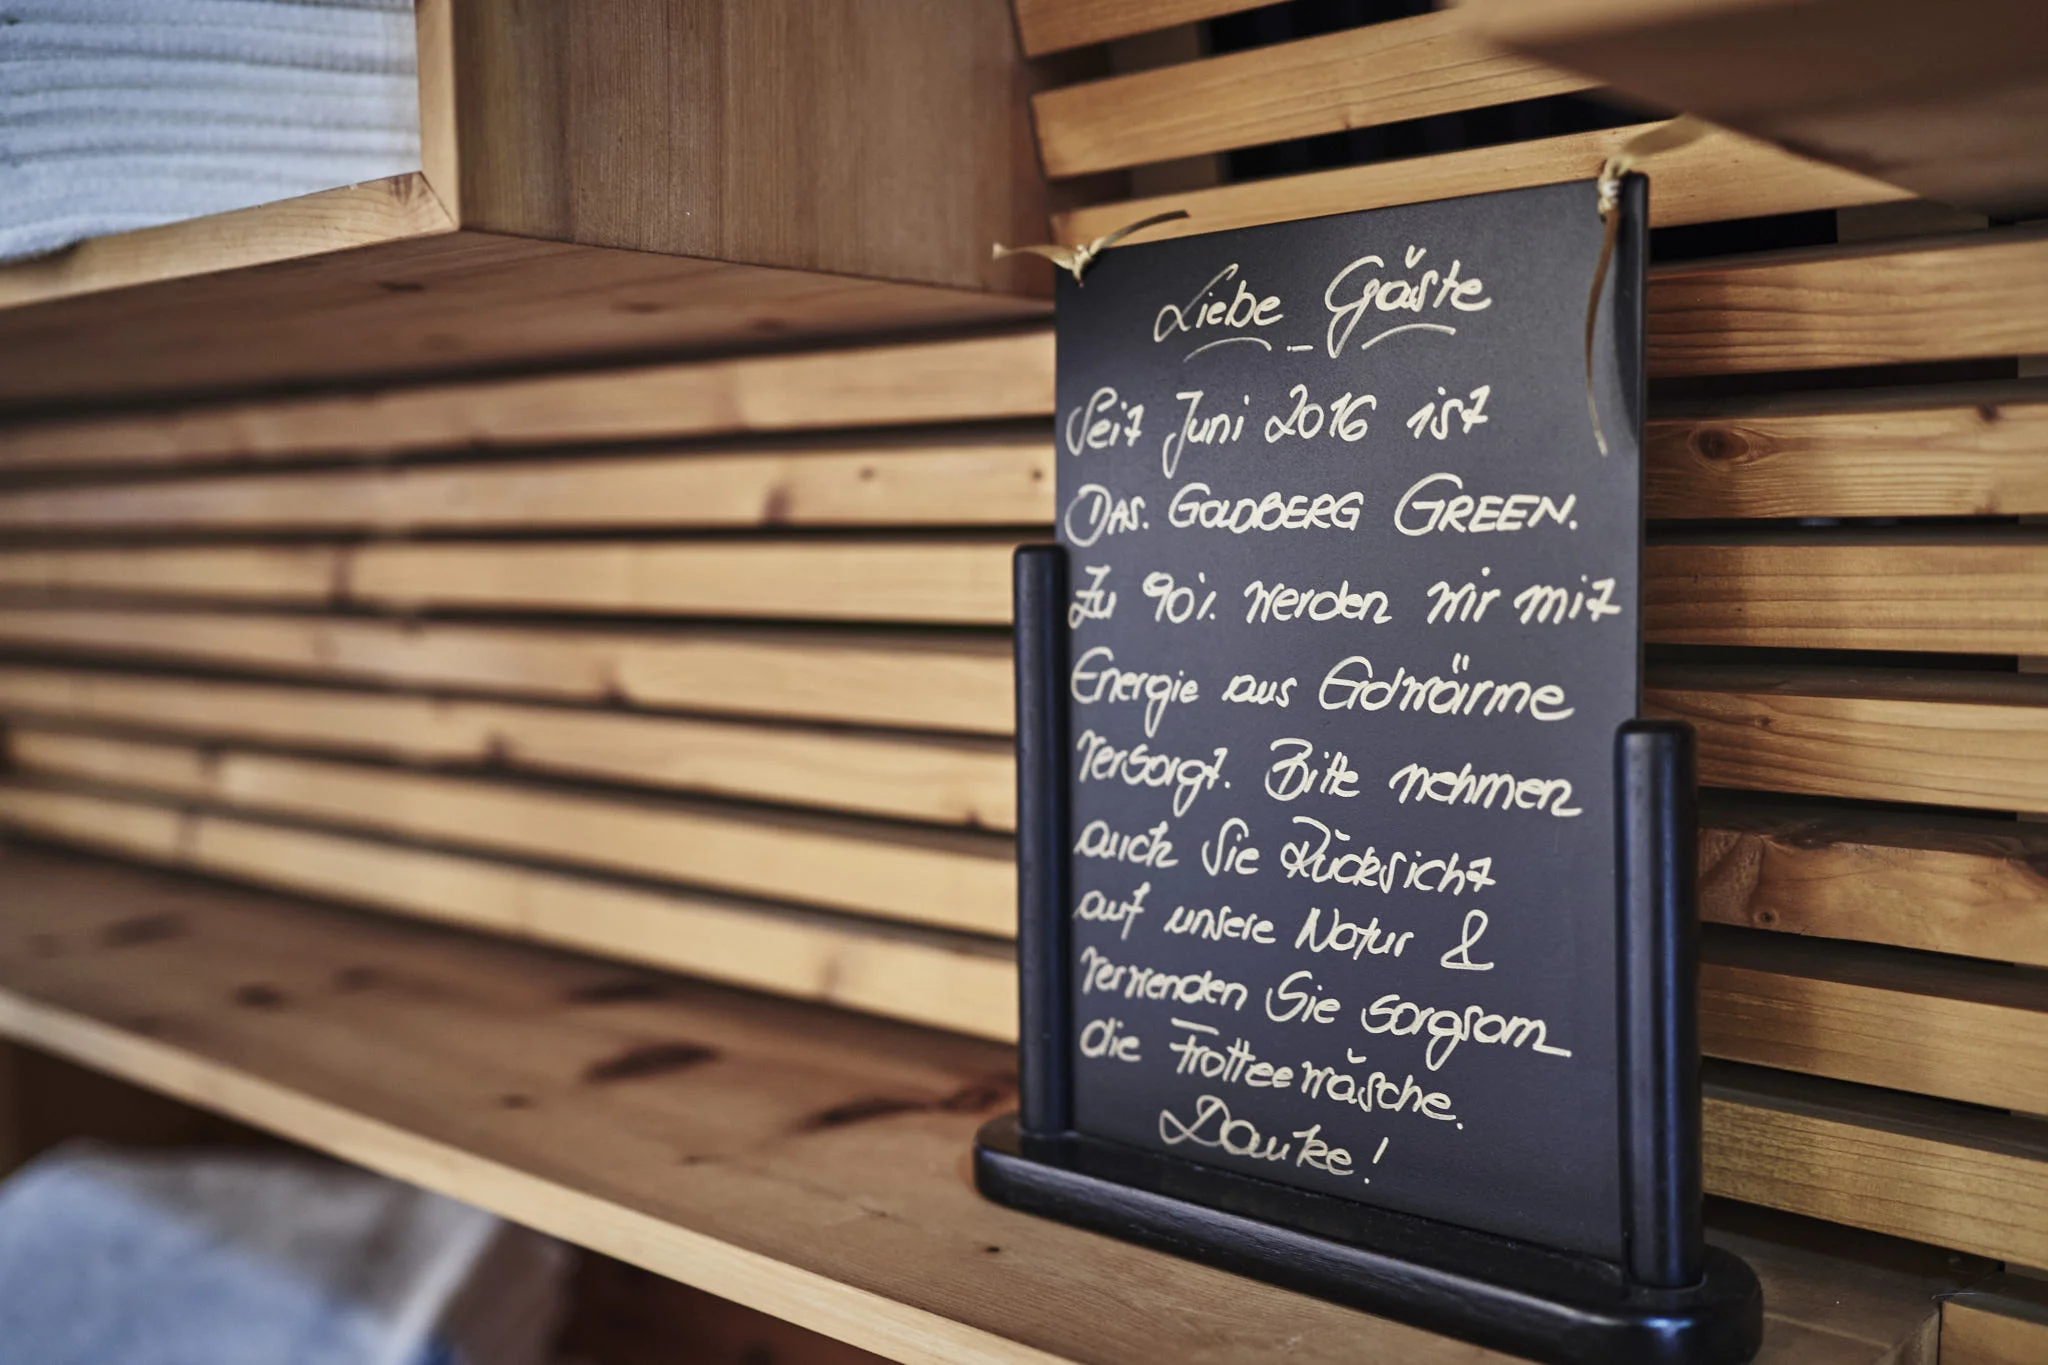 Liebe Gäste
Seit Juni 2016 ist
DAS. GOLDBERG GREEN.
Zu 90% werden wir mit
Energie aus Erdwärme
versorgt. Bitte nehmen
auch Sie Rücksicht
auf unsere Natur &
verwenden Sie sorgsam
die Frotteewäsche.
Danke!